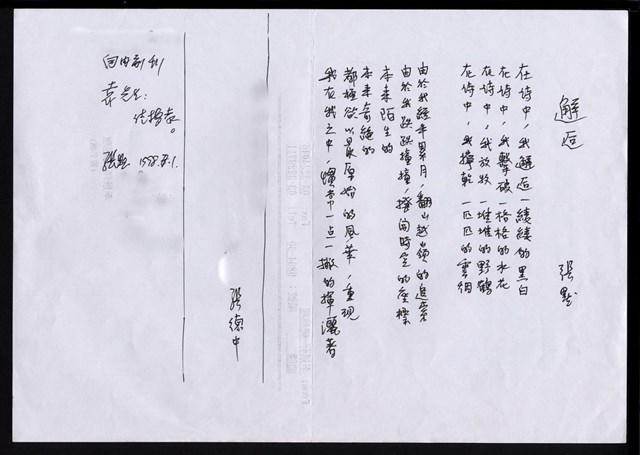 邂逅
張默
在诗中，我邂逅一縷縷的黑白
在诗中，我擊破一格格的水花
在诗中，我放牧一堆堆的野鶴
在诗中，我擰乾一匹匹的雲
由於我經年累月，翻山越嶺的追索
由於我跌跌撞撞，擠向時空的座標
本来陌生的
本来奇絕的
都極欲以最原始的風華，重現
我在我之中，一点一撇的揮灑著
張德中
自由副刊
袁先生：
張默